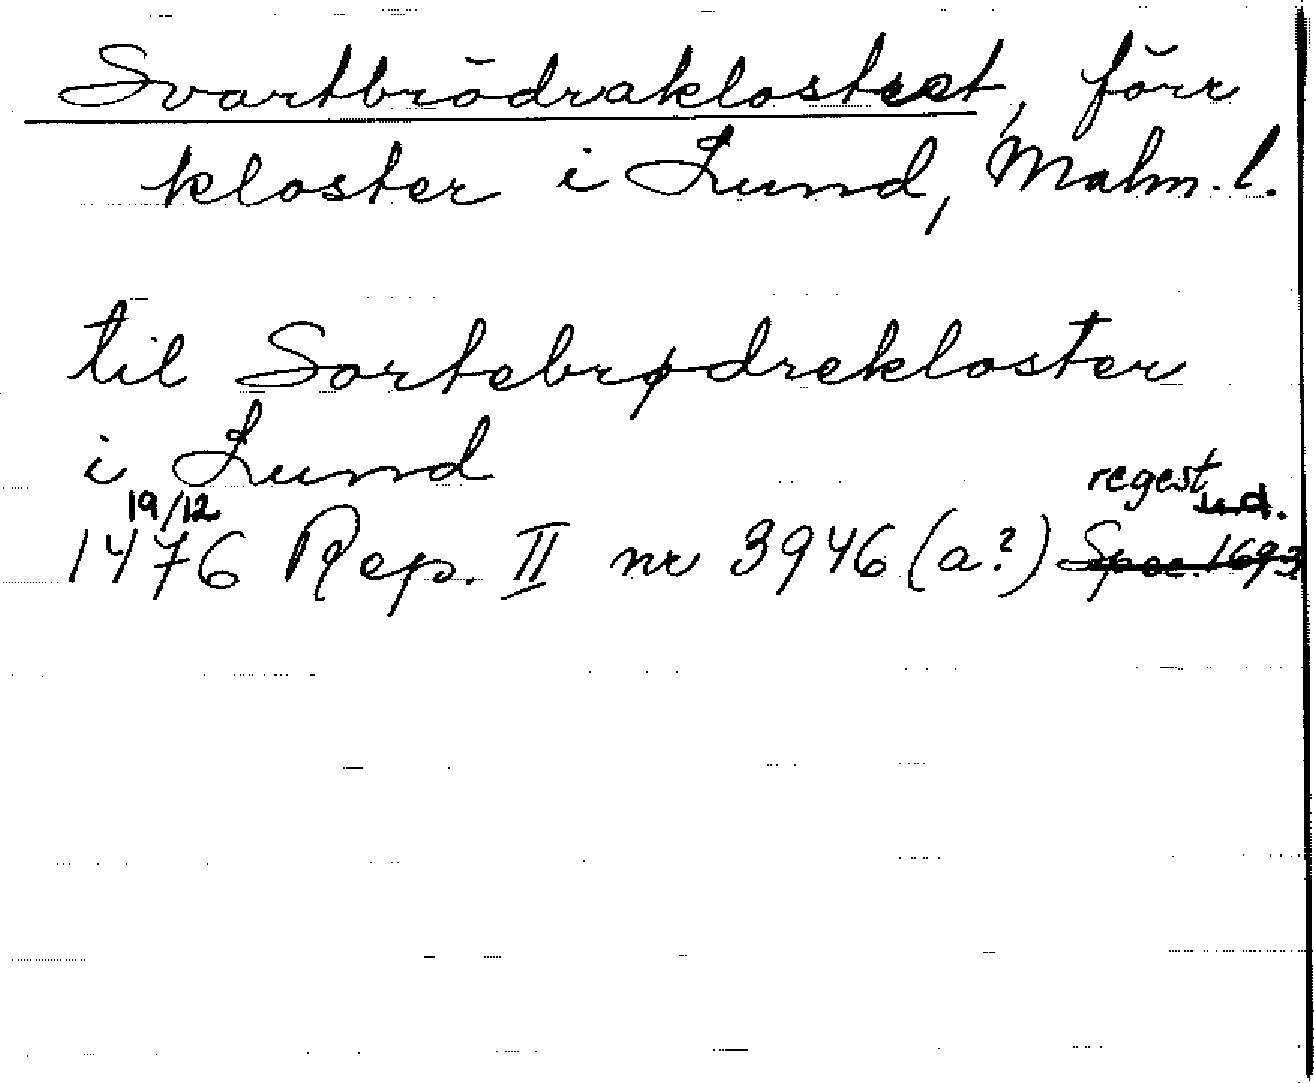 Svartbrödraklostret, förr
kloster i Lund, Malm. l.
til Sortebrødrekloster
i Lund
regest
19/12 u.d.
1476 Rep. II nr 3946 (a?) Spec. 1693